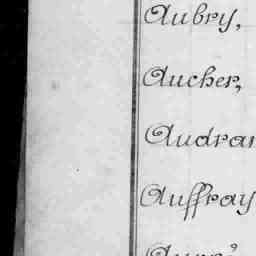 Aubry,
Aucher,
Audran
Auffray